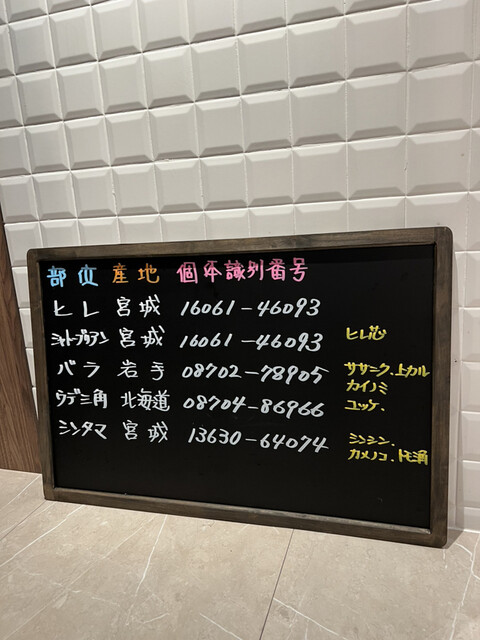 部位 産地 個体識別番号
ヒレ 宮城 16061-46093
シャトーブリアン 宮城 16061-46093 ヒレ芯
バラ 岩手 08702-78905 ササニク、上カル
カイノミ
ウデ三角 北海道 08704-86966 ユッケ、
シンタマ 宮城 13630-64074 シンシン、
カメノコ、トモ角